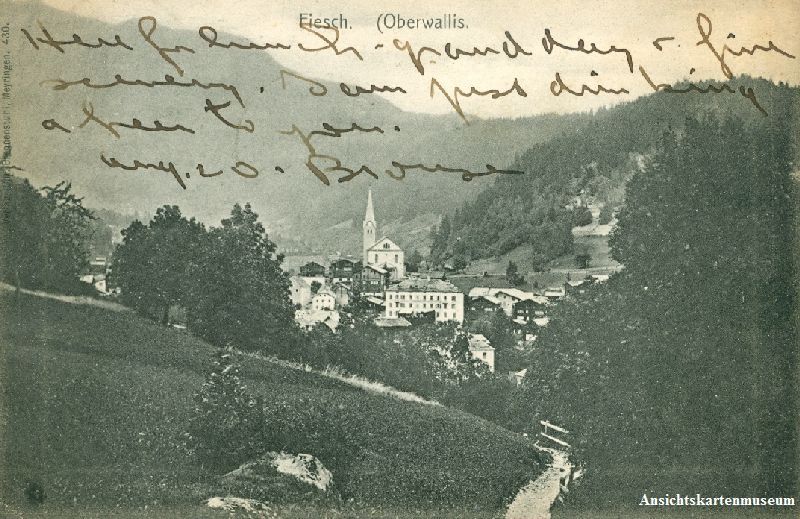 Fiesch. (Oberwallis.
Here for lunch - grand day & fine
scenery. Sam just drinking
a beer to you.
Aug. 20 -
Meyringen. 430.
Ansichtskartenmuseum